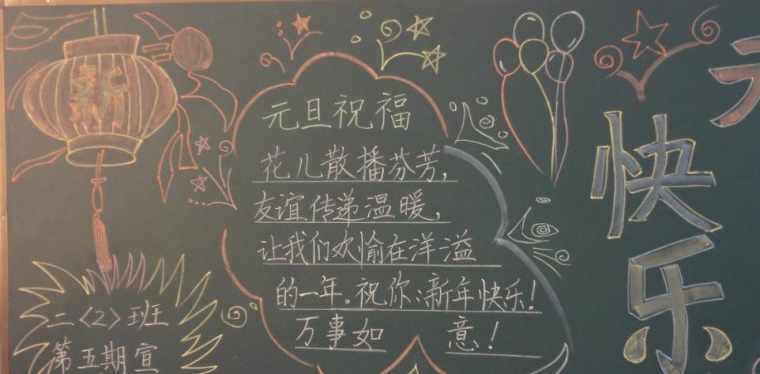 元旦祝福
花儿散播芬芳，
友谊传递温暖，
让我们欢愉在洋溢
的一年。祝你：新年快乐！
万事如意！
二〈2〉班
第五期宣
快乐